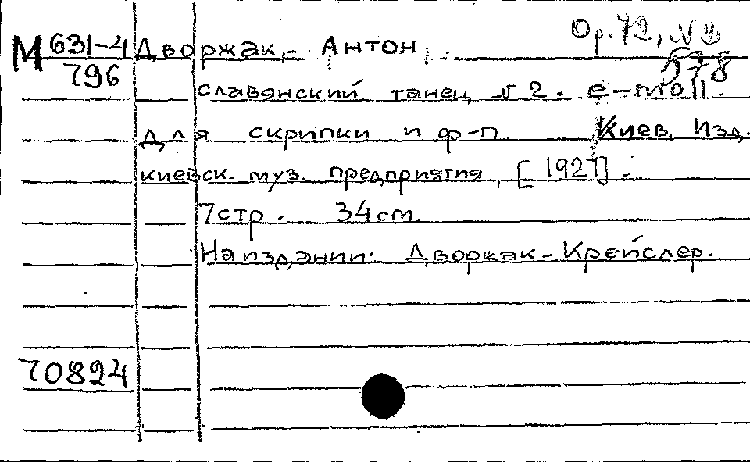 М 631-4 Дворжак, Антон. Op. 72, №
796 578
славянский танец № 2. e-moll
для скрипки и ф-п Киев, Изд.
киевск. муз. предприятия, [1927].
7 стр. 34 cm.
На издании: Дворжак-Крейслер.
70824